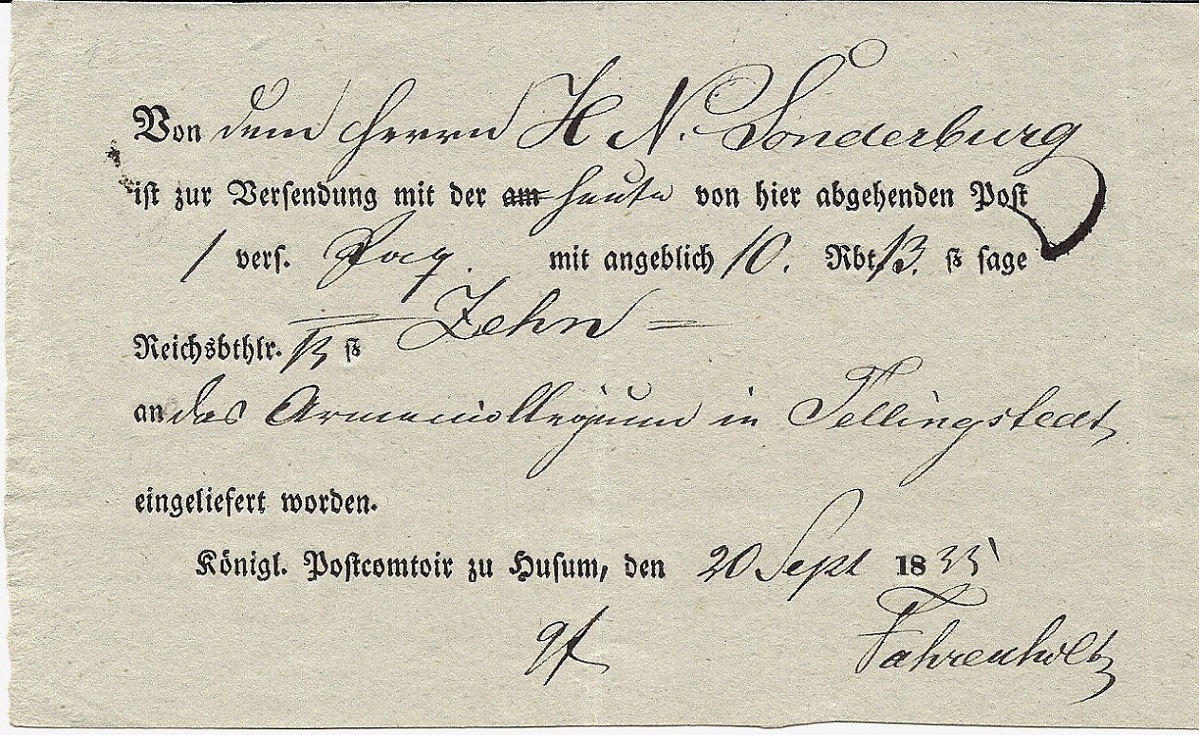 Von dem Herrn H. N. Sonderburg
ist zur Versendung mit der am heute von hier abgehenden Post
1 vers. Pag. mit angeblich 10. Rbt ß sage
Zehn
Reichsbthlr. ß
an das Armencollegium in Tellingstedt
eingeliefert worden.
Königl. Postcomtoir zu Husum, den 20 Sept 1835
Fahrenholtz